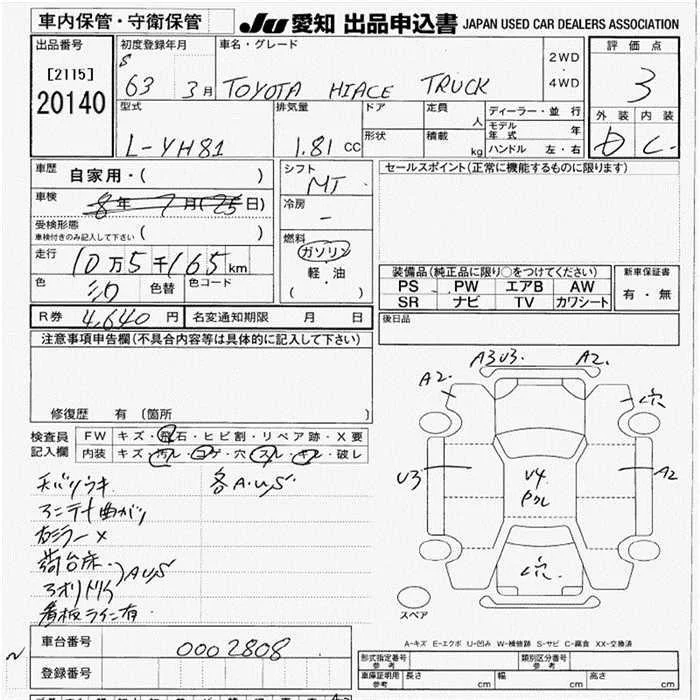 車内保管・守衛保管
JU 愛知 出品申込書 JAPAN USED CAR DEALERS ASSOCIATION
出品番号
[2115]
20140
初度登録年月
S 63 3月
車名・グレード
TOYOTA HIACE TRUCK
2WD
・
4WD
評価点
3
型式
L-YH81
排気量
1.81 CC
ドア
形状
定員
人
積載
kg
ディーラー・並行
モデル年式 年
ハンドル 左・右
外装 内装
D C
車歴
自家用・( )
車検
8年 7月(25日)
受検形態
車検付きのみ記入して下さい ( )
走行
10万5千165km
色
シロ
色替
色コード
シフト
MT
冷房
-
燃料
ガソリン
軽・油
( )
セールスポイント(正常に機能するものに限ります)
装備品(純正品に限り○をつけてください)
PS PW エアB AW
SR ナビ TV カワシート
新車保証書
有・無
R券 4,640円
名変通知期限 月 日
後日品
注意事項申告欄(不具合内容等は具体的に記入して下さい)
修復歴 有 [箇所 ]
検査員
記入欄
FW キズ・飛石・ヒビ割・リペア跡・X要
内装 キズ・汚レ・コゲ・穴・スレ・キレ・破レ
天バリウキ
各A.U.S
アンテナ曲がり
右ミラーX
荷台床
アオリトリイ
)AUS
看板ライン有
A3U3. A2.
A2. 穴
U3
U4
Pクレ
A2
穴.
スペア
A-キズ E-エクボ U-凹み W-補修跡 S-サビ C-腐食 XX-交換済
車台番号
0002808
登録番号
型式指定番号
参考
類別区分番号
参考
車庫証明用
参考
長さ cm
幅 cm
高さ cm